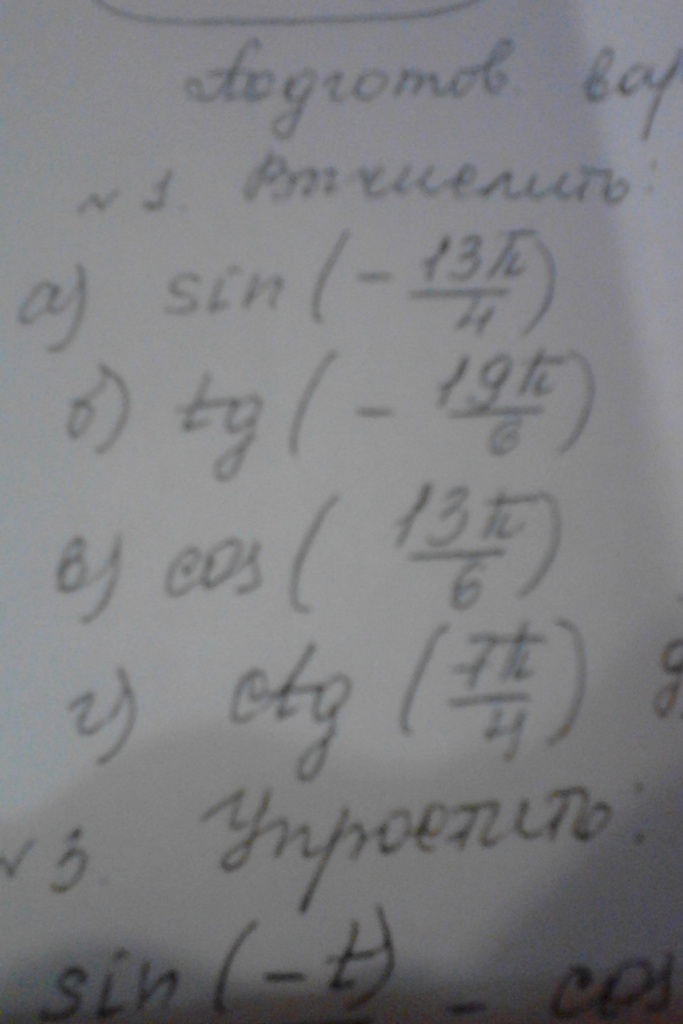 Подготов вар
№ 1. Вычислить:
а) sin (- 13π/4)
б) tg (- 19π/6)
в) cos ( 13π/6)
г) ctg (7π/4)
№ 3. Упростить:
sin (-t) - cos